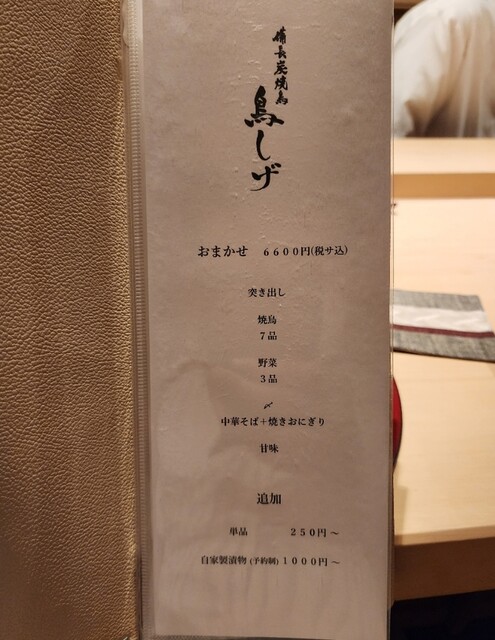 備長炭焼鳥
鳥しげ
おまかせ 6600円(税サ込)
突き出し
焼鳥
7品
野菜
3品
〆
中華そば+焼きおにぎり
甘味
追加
単品 250円~
自家製漬物 (予約制) 1000円~